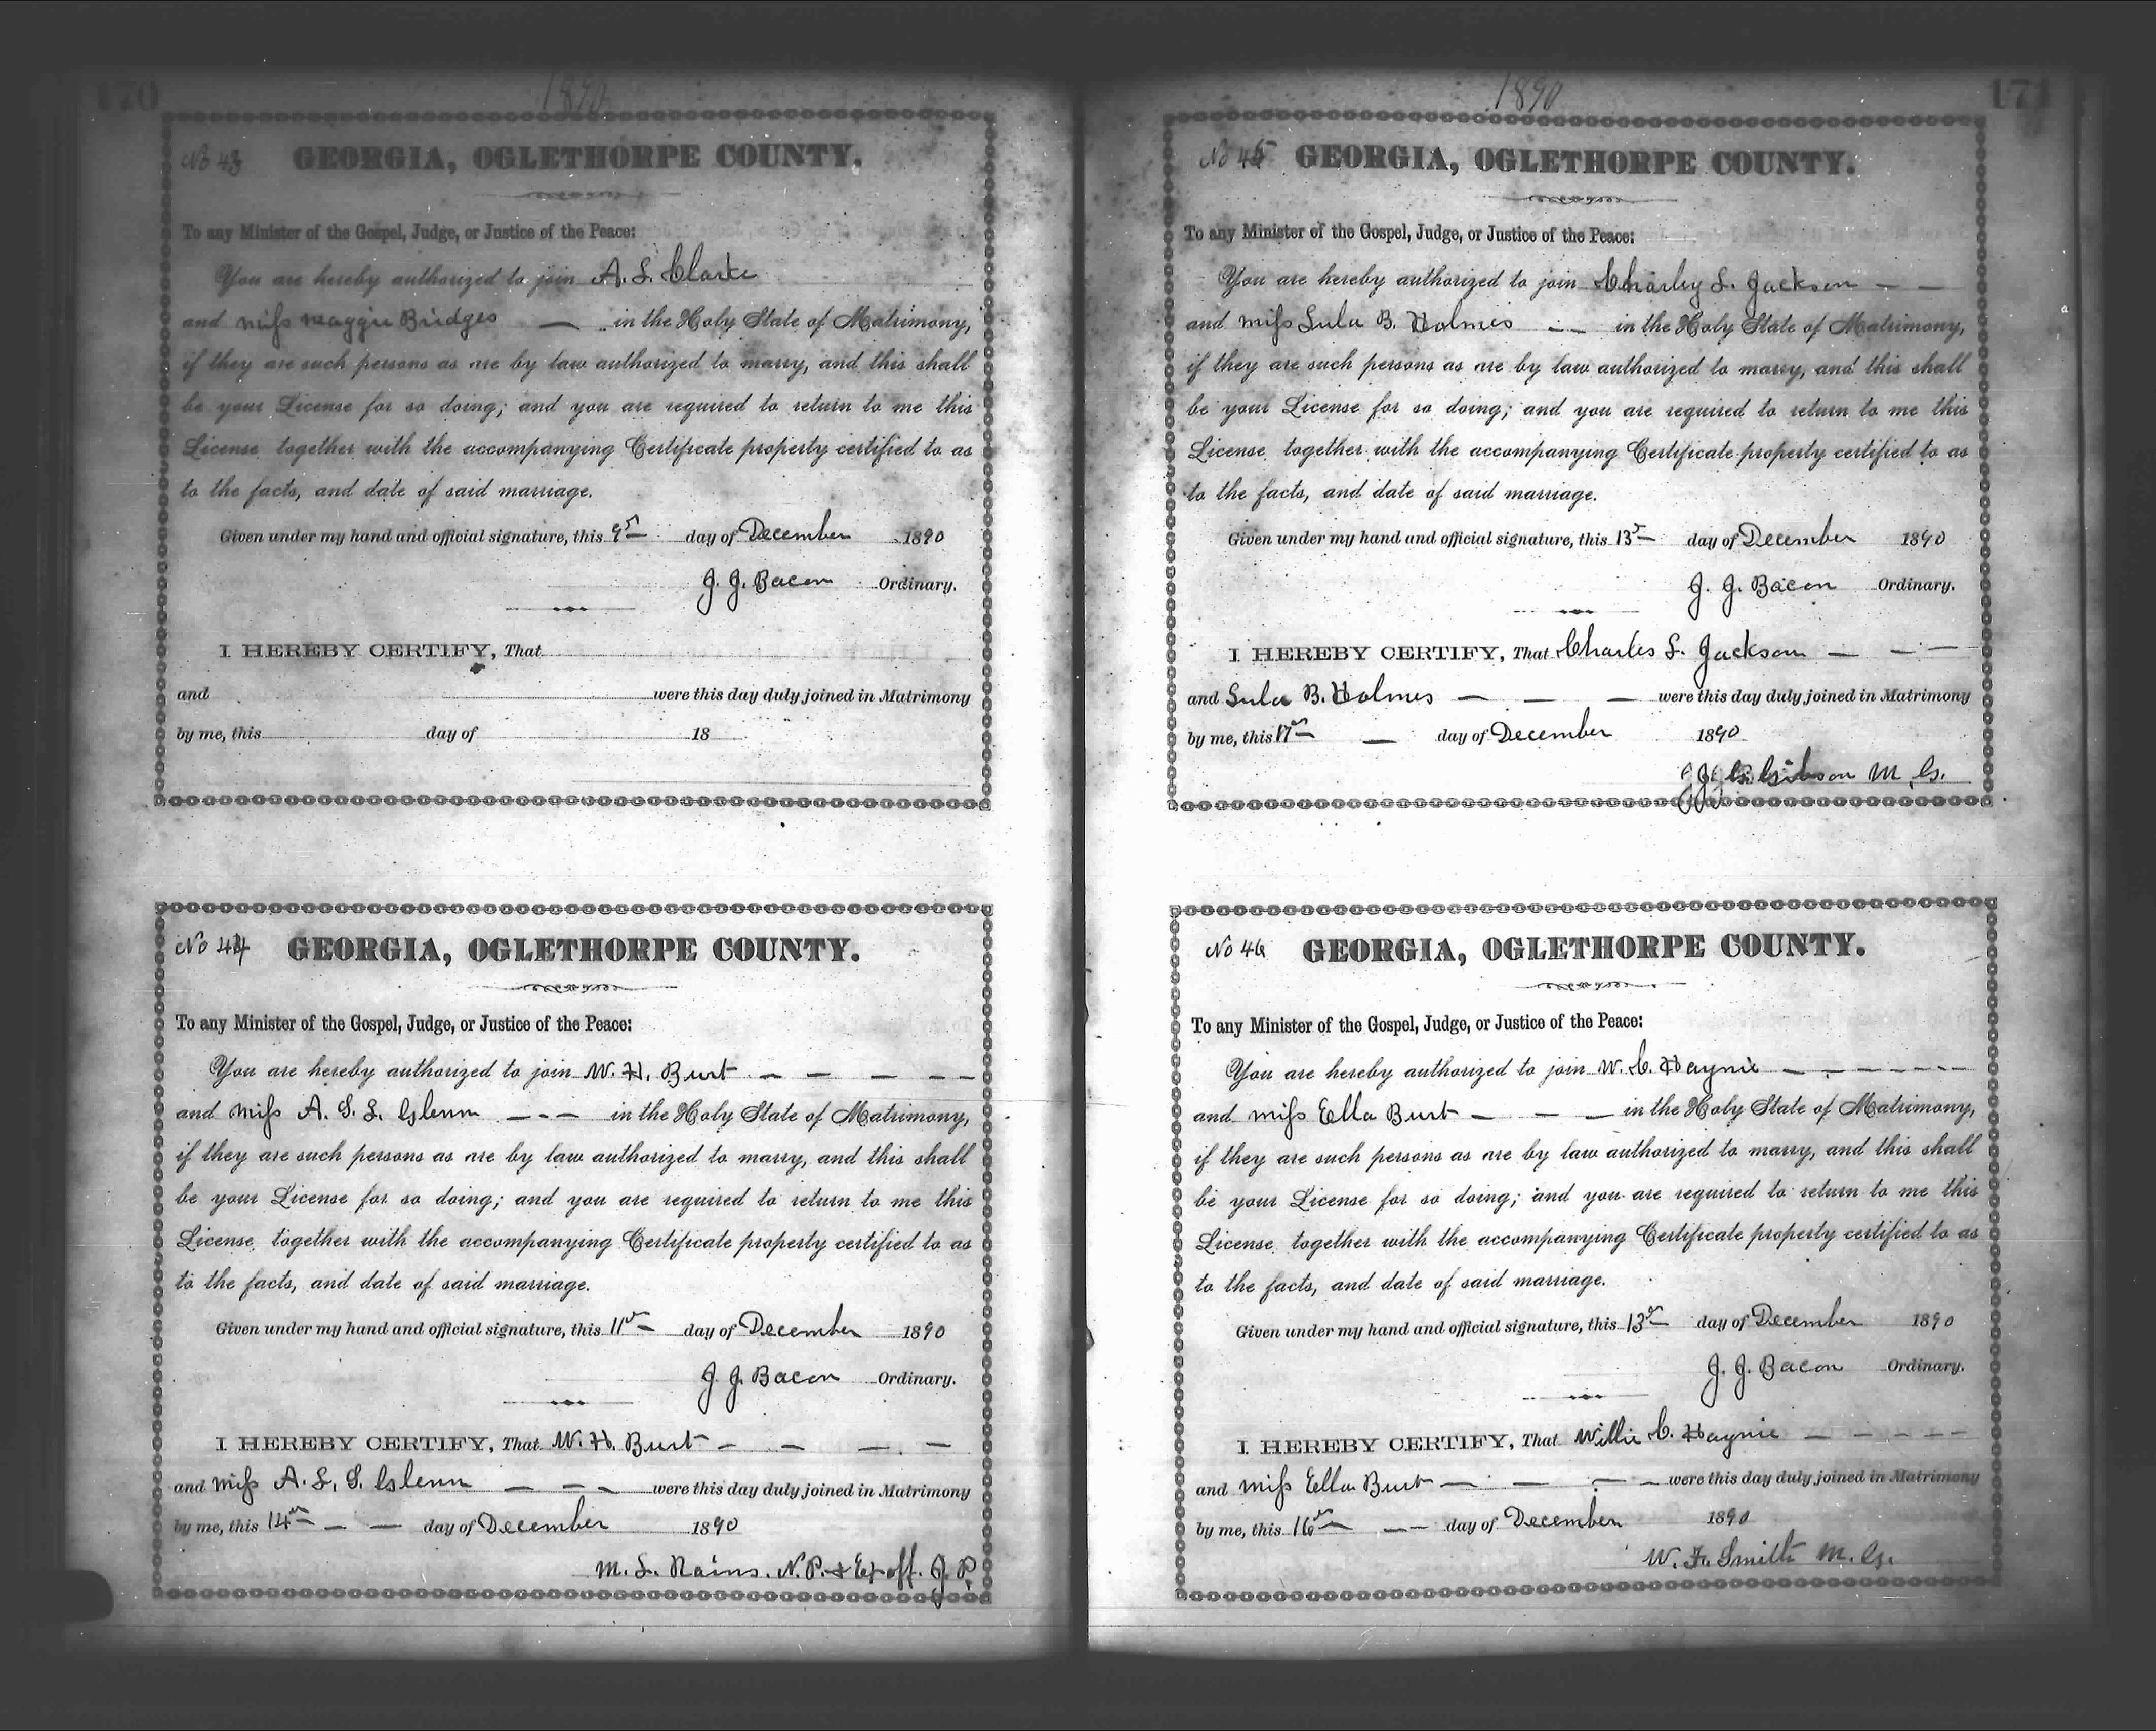 170
1890
No 43 GEORGIA, OGLETHORPE COUNTY.
To any Minister of the Gospel, Judge, or Justice of the Peace:
You are hereby authorized to join A. S. Clarke
and Miss Maggie Bridges — in the Holy State of Matrimony,
if they are such persons as are by law authorized to marry, and this shall
be your License for so doing; and you are required to return to me this
License, together with the accompanying Certificate property certified to as
to the facts, and date of said marriage.
Given under my hand and official signature, this 9th day of December 1890
J. J. Bacon Ordinary.
I HEREBY CERTIFY, That
and were this day duly joined in Matrimony
by me, this day of 18
No 44 GEORGIA, OGLETHORPE COUNTY.
To any Minister of the Gospel, Judge, or Justice of the Peace:
You are hereby authorized to join W. H. Burt — — — — —
and Miss A. S. L. Glenn — — — in the Holy State of Matrimony,
if they are such persons as are by law authorized to marry, and this shall
be your License for so doing; and you are required to return to me this
License, together with the accompanying Certificate property certified to as
to the facts, and date of said marriage.
Given under my hand and official signature, this 11th day of December 1890
J. J. Bacon Ordinary.
I HEREBY CERTIFY, That W. H. Burt — — — —
and Miss A. L. S. Glenn — — — were this day duly joined in Matrimony
by me, this 14th — — day of December 1890
M. L. Rains. N. P. & Ex off. J. P.
171
1890
No 45 GEORGIA, OGLETHORPE COUNTY.
To any Minister of the Gospel, Judge, or Justice of the Peace:
You are hereby authorized to join Charley L. Jackson — —
and Miss Lula B. Holmes — — in the Holy State of Matrimony,
if they are such persons as are by law authorized to marry, and this shall
be your License for so doing; and you are required to return to me this
License, together with the accompanying Certificate property certified to as
to the facts, and date of said marriage.
Given under my hand and official signature, this 13th day of December 1890
J. J. Bacon Ordinary.
I HEREBY CERTIFY, That Charles L. Jackson — — —
and Lula B. Holmes — — — were this day duly joined in Matrimony
by me, this 17th — day of December 1890
Gibson M. G.
No 46 GEORGIA, OGLETHORPE COUNTY.
To any Minister of the Gospel, Judge, or Justice of the Peace:
You are hereby authorized to join W. C. Haynie — — — — — —
and Miss Ella Burt — — — in the Holy State of Matrimony,
if they are such persons as are by law authorized to marry, and this shall
be your License for so doing; and you are required to return to me this
License, together with the accompanying Certificate property certified to as
to the facts, and date of said marriage.
Given under my hand and official signature, this 13th day of December 1890
J. J. Bacon Ordinary.
I HEREBY CERTIFY, That Willie C. Haynie — — — — —
and Miss Ella Burt — — — — were this day duly joined in Matrimony
by me, this 16th — — day of December 1890
W. F. Smith M. G.